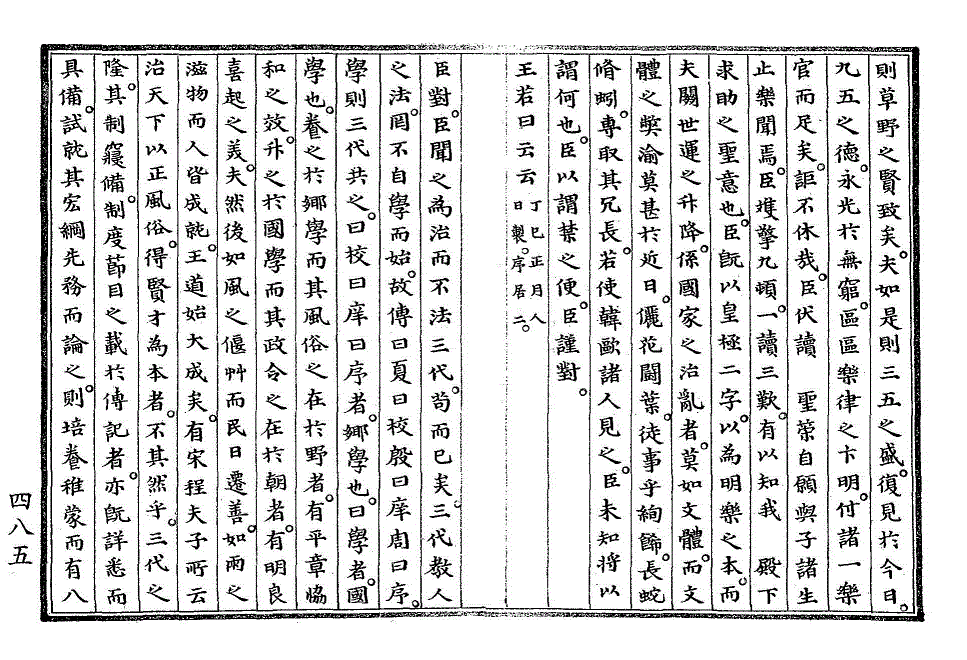 則草野之賢致矣。夫如是則三五之盛。復見於今日。
九五之德。永光於無窮。區區樂律之卞明。付諸一樂
官而足矣。詎不休哉。臣伏讀 聖策自願與子諸生
止樂聞焉。臣擭擎九頓。一讀三歎。有以知我 殿下
求助之聖意也。臣旣以皇極二字。以爲明樂之本。而
夫關世運之升降。係國家之治亂者。莫如文體。而文
體之獘渝莫甚於近日。儷花鬪葉。徒事乎絢餙。長蛇
脩蚓。專取其冗長。若使韓歐諸人見之。臣未知將以
謂何也。臣以謂禁之便。臣謹對。
王若曰云云 丁巳正月人日製。序居二。
臣對。臣聞之爲治而不法三代。苟而已矣。三代敎人
之法。罔不自學而始。故傳曰夏曰校殷曰庠周曰序。
學則三代共之。曰校曰庠曰序者。鄕學也。曰學者。國
學也。養之於鄕學而其風俗之在於野者。有平章恊
和之效。升之於國學而其政令之在於朝者。有明良
喜起之義。夫然後如風之偃艸而民日遷善。如雨之
滋物而人皆成就。王道始大成矣。有宋程夫子所云
治天下以正風俗。得賢才爲本者。不其然乎。三代之
隆。其制寢備。制度節目之載於傳記者。亦旣詳悉而
具備。試就其宏綱先務而論之。則培養稚蒙而有八
四八五